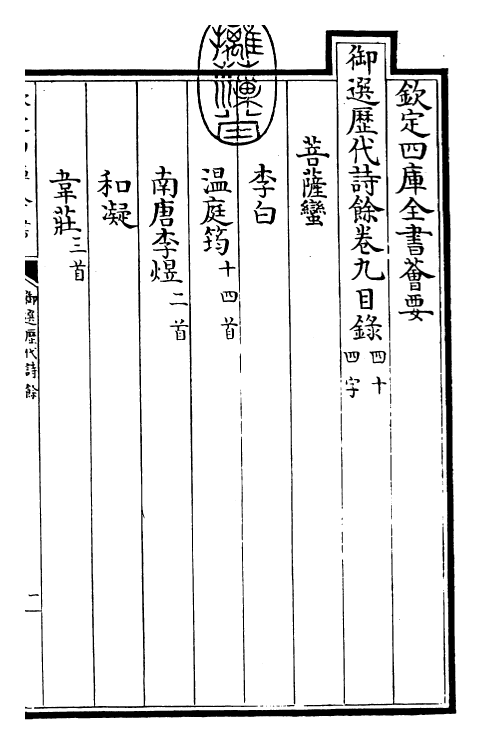 欽定四庫全書薈要
御選歷代詩餘卷九目錄四十四字
菩薩蠻
李白
温庭筠十四首
南唐李煜二首
和凝
韋莊三首
御選歷代詩餘